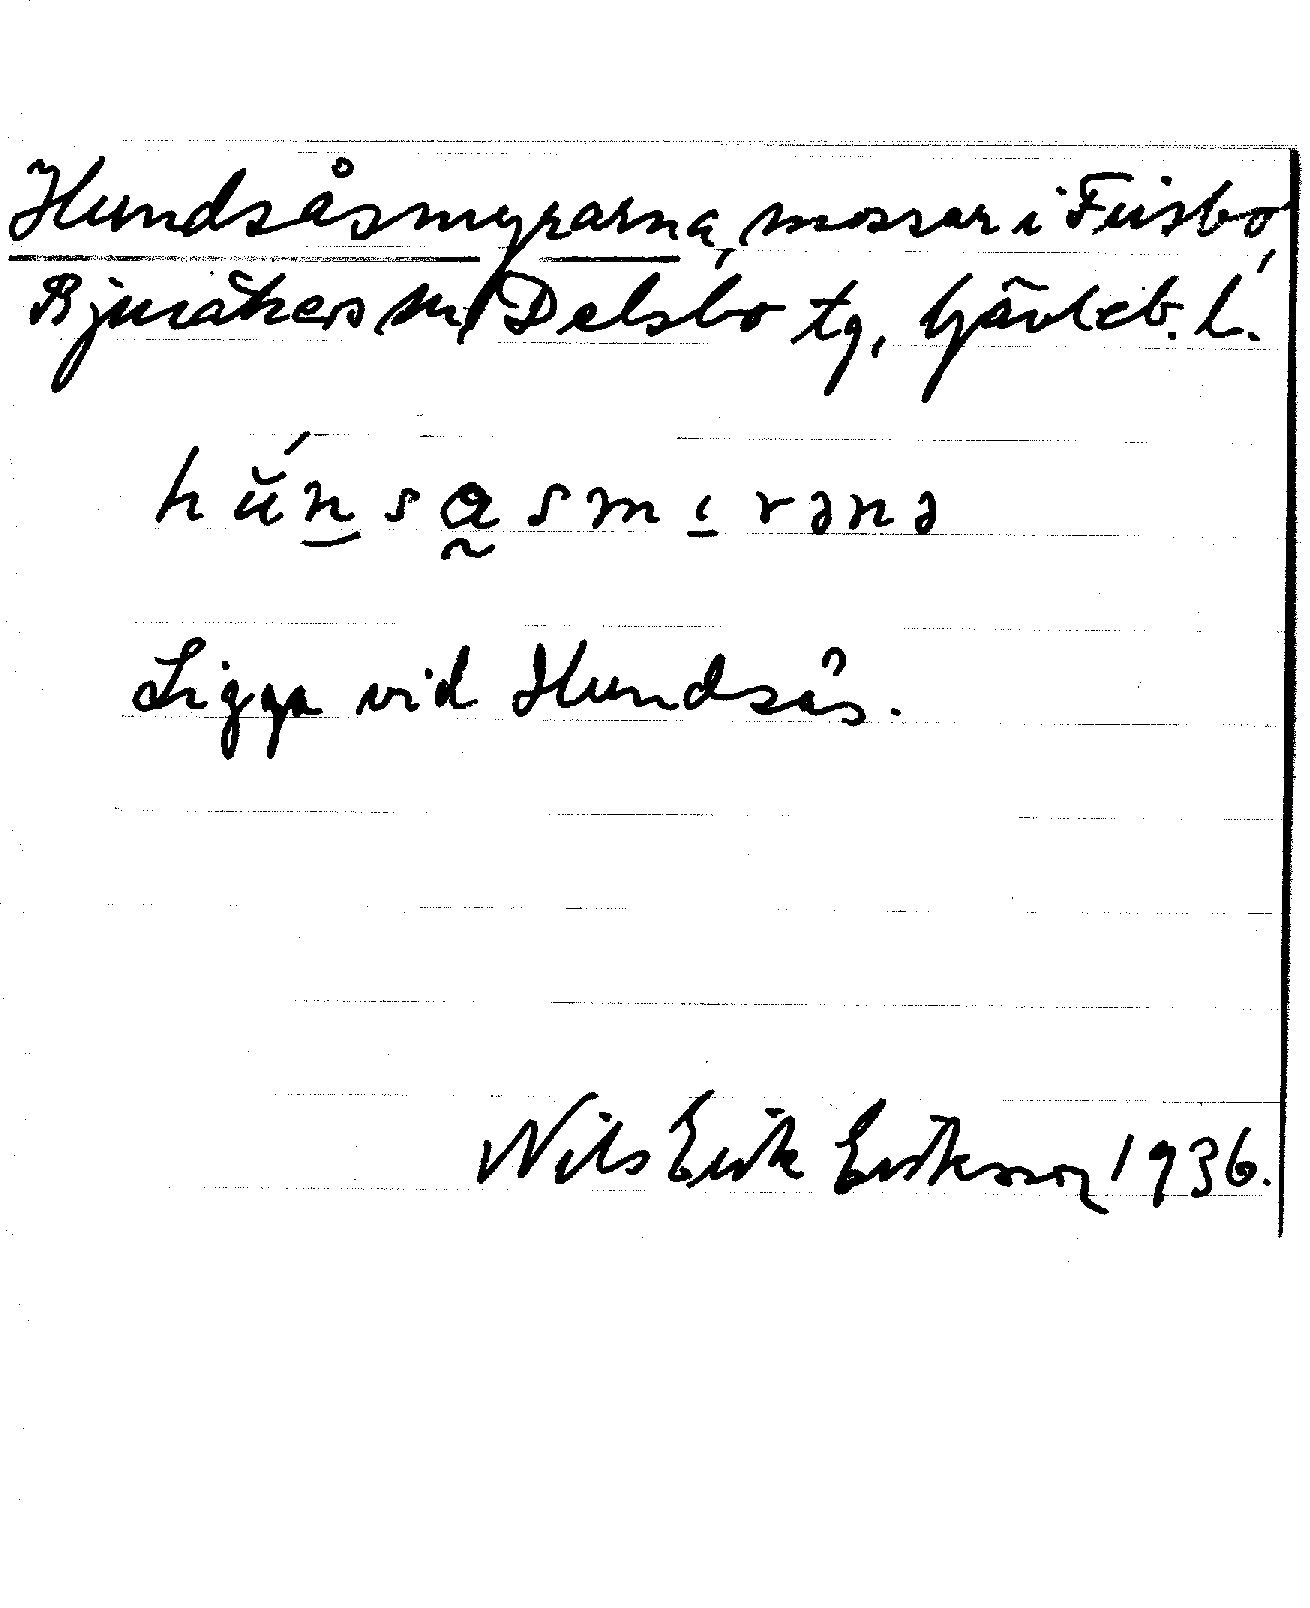 Hundsåsmyrarna, mossar i Frisbo,
Bjuråkers sn, Delsbo tg, Gävleb. l.
hŭ́nsasmırənə
Ligga vid Hundsås.
Nils Erik Eriksson 1936.